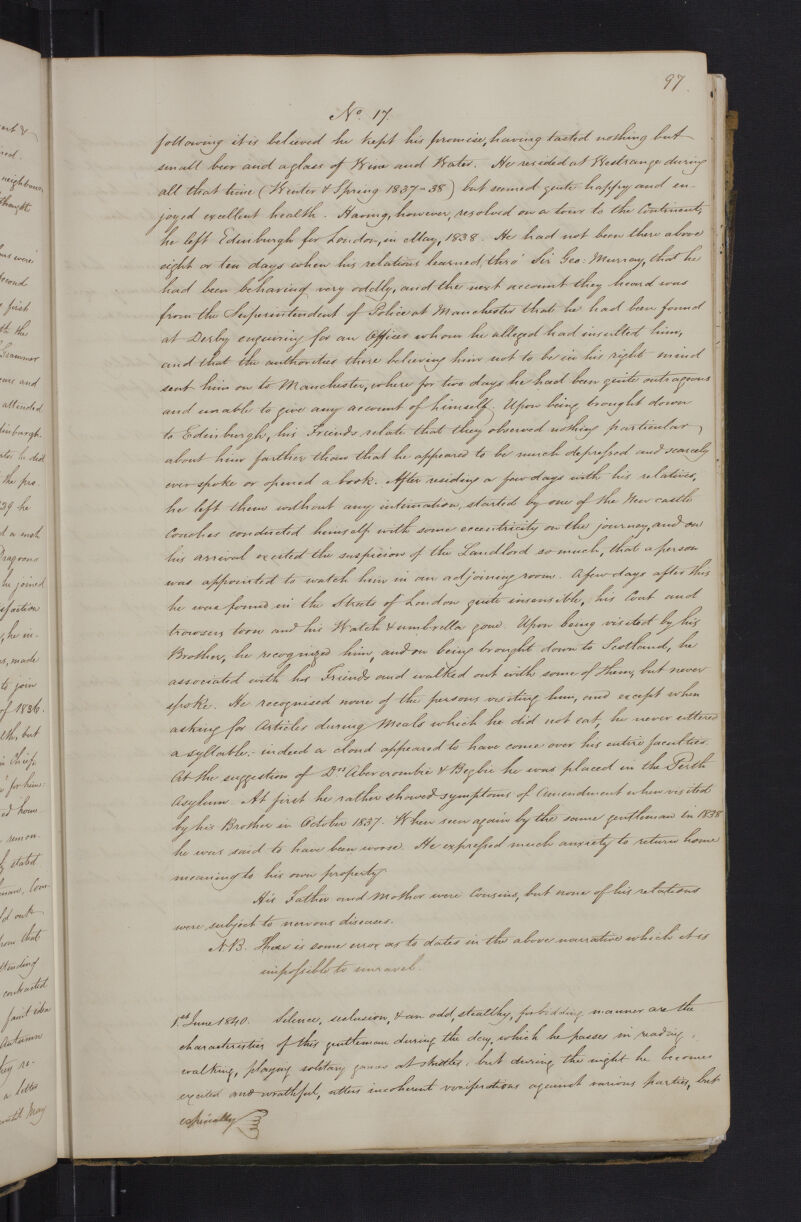 97.
No. 17
following it is believed he kept his promise, having tasted nothing but
small beer and a glass of Wine and Water. He resided at Westrange during
all that time (Winter & Spring 1837-38) but seemed quite happy and en-
joyed excellent health. Having, however, resolved on a tour to the Continent,
he left Edinburgh for London, in May, 1838. He had not been there above
eight or ten days when his relations learned, thro' Sir Geo: Murray, that he
had been behaving very oddly, and the next account they heard was
from the Superintendent of Police at Manchester that he had been found
at Derby enquiring for an Officer whom he alleged had insulted him,
and that the authorities there believing him not to be in his right mind
sent him on to Manchester, where for two days he had been quite outrageous
and unable to give any account of himself. Upon being brought down
to Edinburgh, his Friends relate that they observed nothing particular
about him farther than that he appeared to be much depressed and scarcely
ever spoke or opened a book. After residing a few days with his relatives,
he left them without any intimation, started by one of the New castle
Coaches conducted himself with some eccentricity on the journey, and on
his arrival excited the suspicion of the Landlord so much, that a person
was appointed to watch him in an adjoining room. A few days after this
he was found in the Streets of London quite insensible, his Coat and
trowsers torn and his Watch & umbrella gone. Upon being visited by his
Brother, he recognized him, and on being brought down to Scotland, he
associated with his Friends and walked out with some of them, but never
spoke. He recognised none of the persons visiting him, and except when
asking for Articles during Meals which he did not eat, he never uttered
a syllable. indeed a cloud appeared to have come over his entire faculties.
At the suggestion of Drs. Abercrombie & Begbie he was placed in the Perth
Asylum. At first he rather showed symptoms of Amendment when visited
by his Brother in October 1837. When seen again by the same gentleman in 1838
he was said to have been worse. He expressed much anxiety to return home
meaning to his own property
His Father and Mother were Cousins, but none of his relations
were subject to nervous diseases.
N.B. There is some error as to dates in the above narrative which it is
impossible to unravel.
1st June 1840. Silence, seclusion, & an odd, stealthy, forbidding manner are the
characteristics of this gentleman during the day, which he passes in reading,
walking, playing solitary games at skittles. but during the night he becomes
excited and wrathful, utters incoherent vociferations against various parties, but
especially
neighbour
thought
second
first
th the
Grammar
and
attended
Edinburgh.
he
39 he
Dragoons
he joined
he in-
made
to join
of 1836.
but
in Chief
for him
home
stated
Com-
out
that
contracted
Autumn
re-
a letter
until May